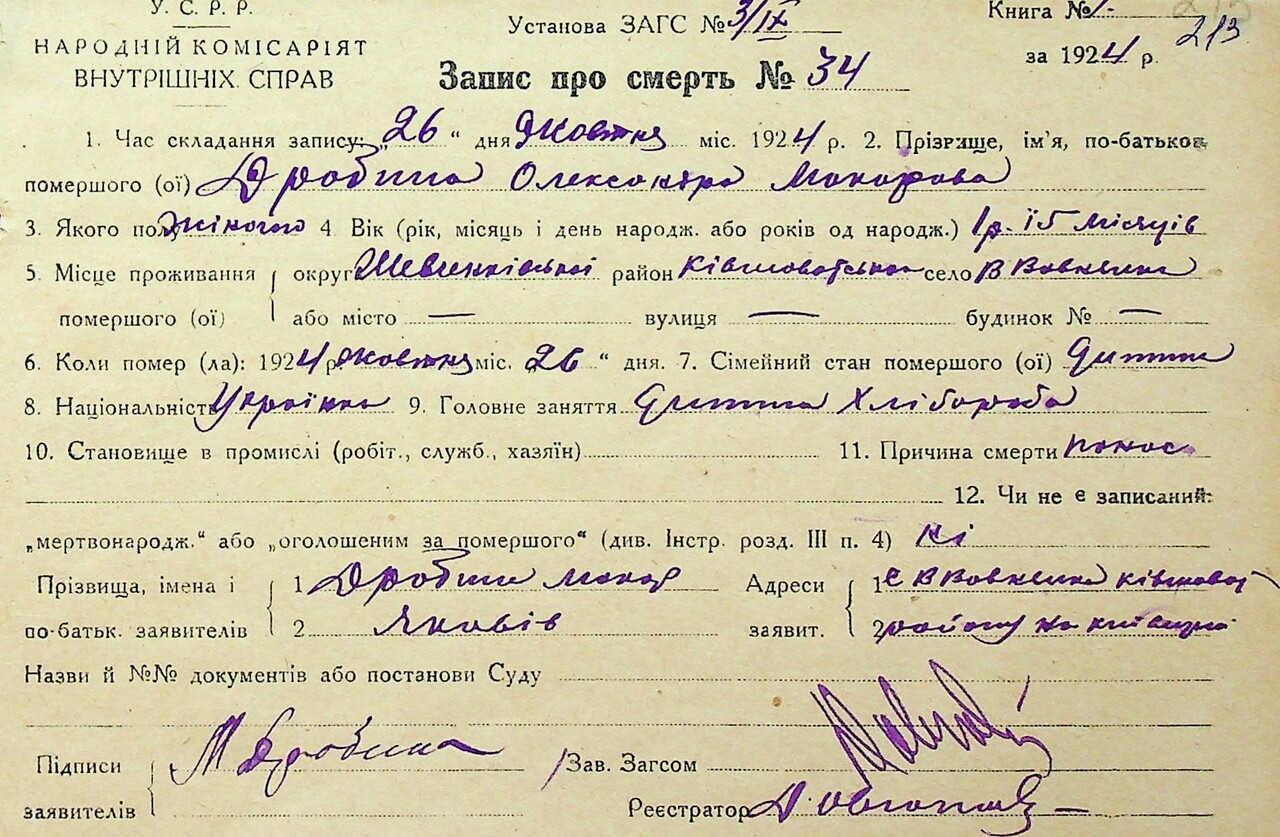 У. С. Р. Р.
НАРОДНІЙ КОМІСАРІЯТ
ВНУТРІШНІХ СПРАВ
Установа ЗАГС № 3/IX
Книга № 1
213
за 1924 р.
Запис про смерть № 34
1. Час складання запису: „26“ дня Жовтня міс. 1924 р. 2. Прізвище, ім'я, по-батькові
помершого (ої) Дробина Олександра Макарова
3. Якого полу жіночого 4. Вік (рік, місяць і день народж. або років од народж.) 1 р. і 5 місяців
5. Місце проживання помершого (ої) округ Шевченківської район Ківшоватського село В Вовнянка
або місто — вулиця — будинок № —
6. Коли помер (ла): 1924 р. жовтня міс. „26“ дня. 7. Сімейний стан помершого (ої) дитина
8. Національність Українка 9. Головне заняття Дитина Хлібороба
10. Становище в промислі (робіт., служб., хазяїн) 11. Причина смерти понос
12. Чи не є записаний:
„мертвонародж.“ або „оголошеним за помершого“ (див. Інстр. розд. III п. 4) Ні
Прізвища, імена і по-батьк. заявителів 1 Дробина Макар
2 Яковів
Адреси заявит. 1 с В Вовнянка Ківшоват
2 району на Київщині
Назви й №№ документів або постанови Суду
Підписи заявителів М Дробина
Зав. Загсом
Реєстратор